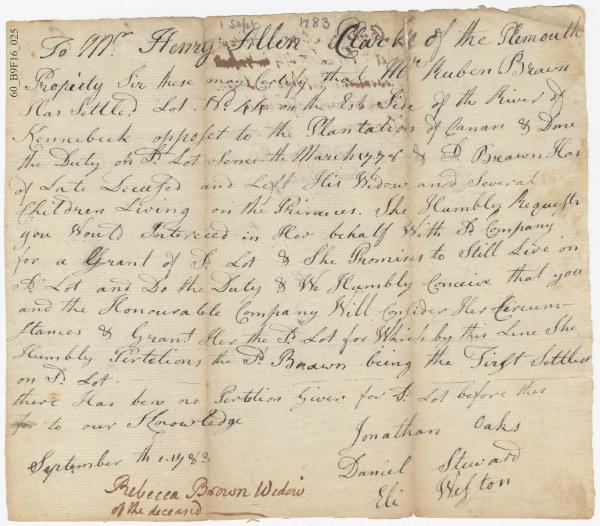 60_B9F16_025
1 Sept 1783
To Mr Henry Allen Clarke of the Plemouth
Propiety Sir these may Certify that Mr Ruben Brawn
Has Settled Lot No 44 on the Est Side of the River of
Kennebeck opposet to the Plantation of Canan & Done
the Duty on Sd Lot Sence the March 1778 & Sd Brawn Has
of Late Decesed and Left His Widow and Several
Children Living on the Primices. She Humbly Requests
you Would Interceed in Her behalf With Sd Company
for a Grant of Sd Lot & She Promises to Still Live on
Sd Lot and Do the Duty & We Humbly Conceive that you
and the Honourable Company Will Consider Her Circum-
stances & Grant Her the Sd Lot for Which by this Line She
Humbly Pertetions the Sd Brawn being the First Settler
on Sd Lot.
there Has ben no Pertetion Given for Sd Lot before this
to our Knowledge
Jonathan Oaks
September th 1. 1783
Daniel Steward
Eli Weston
Rebecca Brown Widow
of the deceased